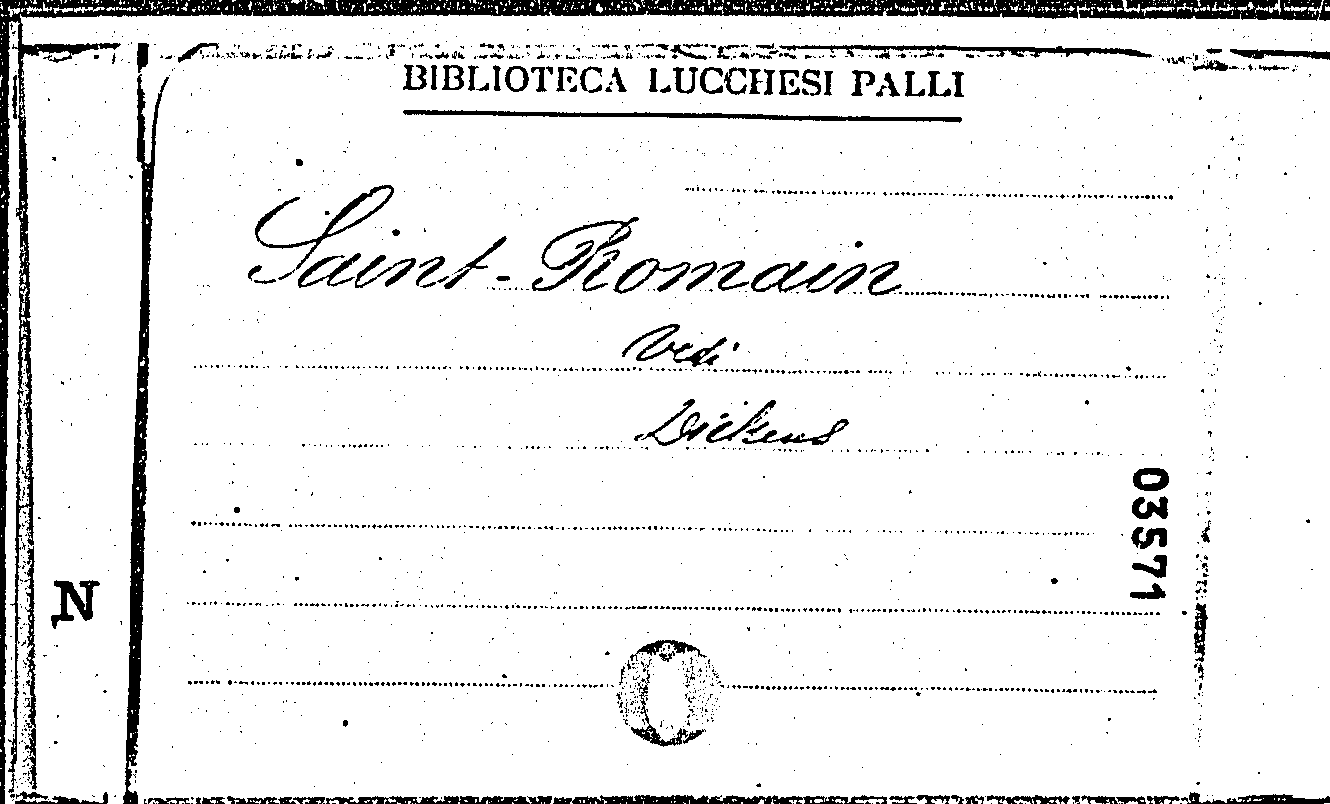 BIBLIOTECA LUCCHESI PALLI
Saint-Romain
Vedi
Dickens
03571
N